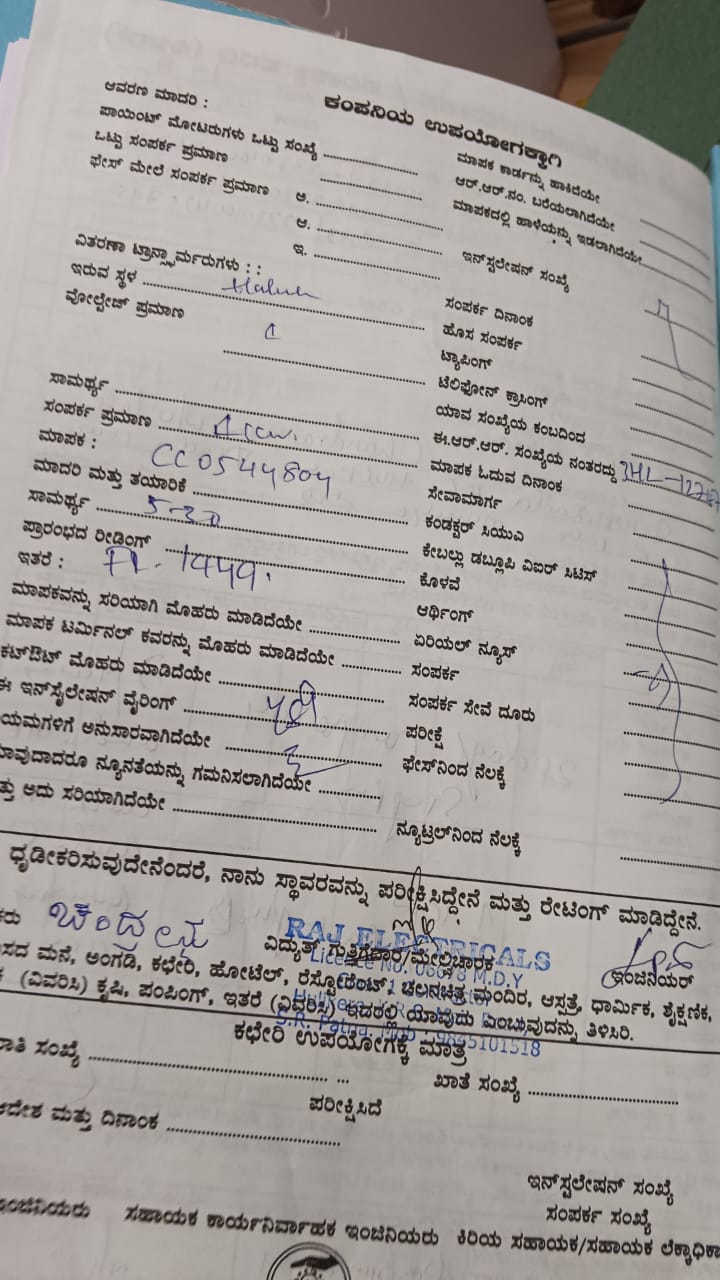 ಕಂಪನಿಯ ಉಪಯೋಗಕ್ಕಾಗಿ
ಆವರಣ ಮಾದರಿ :
ಪಾಯಿಂಟ್ ಮೋಟರುಗಳು ಒಟ್ಟು ಸಂಖ್ಯೆ
ಒಟ್ಟು ಸಂಪರ್ಕ ಪ್ರಮಾಣ
ಫೇಸ್ ಮೇಲೆ ಸಂಪರ್ಕ ಪ್ರಮಾಣ ಅ.
ಆ.
ಇ.
ವಿತರಣಾ ಟ್ರಾನ್ಸ್ಫಾರ್ಮರುಗಳು : :
ಇರುವ ಸ್ಥಳ
ವೋಲ್ಟೇಜ್ ಪ್ರಮಾಣ
ಸಾಮರ್ಥ್ಯ
ಸಂಪರ್ಕ ಪ್ರಮಾಣ
ಮಾಪಕ : CC0544804
ಮಾದರಿ ಮತ್ತು ತಯಾರಿಕೆ
ಸಾಮರ್ಥ್ಯ 5-30
ಪ್ರಾರಂಭದ ರೀಡಿಂಗ್
ಇತರೆ : 1449.
ಮಾಪಕವನ್ನು ಸರಿಯಾಗಿ ಮೊಹರು ಮಾಡಿದೆಯೇ
ಮಾಪಕ ಟರ್ಮಿನಲ್ ಕವರನ್ನು ಮೊಹರು ಮಾಡಿದೆಯೇ
ಕಟ್‌ಔಟ್ ಮೊಹರು ಮಾಡಿದೆಯೇ
ಈ ಇನ್‌ಸ್ಟಲೇಷನ್ ವೈರಿಂಗ್
ಯಮಗಳಿಗೆ ಅನುಸಾರವಾಗಿದೆಯೇ
ವುದಾದರೂ ನ್ಯೂನತೆಯನ್ನು ಗಮನಿಸಲಾಗಿದೆಯೇ
ತ್ತು ಅದು ಸರಿಯಾಗಿದೆಯೇ
ಮಾಪಕ ಕಾರ್ಡನ್ನು ಹಾಕಿದೆಯೇ
ಆರ್.ಆರ್.ನಂ. ಬರೆಯಲಾಗಿದೆಯೇ
ಮಾಪಕದಲ್ಲಿ ಹಾಳೆಯನ್ನು ಇಡಲಾಗಿದೆಯೇ
ಇನ್‌ಸ್ಟಲೇಷನ್ ಸಂಖ್ಯೆ
ಸಂಪರ್ಕ ದಿನಾಂಕ
ಹೊಸ ಸಂಪರ್ಕ
ಟ್ಯಾಪಿಂಗ್
ಟೆಲಿಫೋನ್ ಕ್ರಾಸಿಂಗ್
ಯಾವ ಸಂಖ್ಯೆಯ ಕಂಬದಿಂದ
ಈ.ಆರ್.ಆರ್. ಸಂಖ್ಯೆಯ ನಂತರದ್ದು
ಮಾಪಕ ಓದುವ ದಿನಾಂಕ
ಸೇವಾಮಾರ್ಗ
ಕಂಡಕ್ಟರ್ ಸಿಯುವಿ
ಕೇಬಲ್ಲು ಡಬ್ಲೂಪಿ ವಿಐರ್ ಸಿಟಿಸ್
ಕೊಳವೆ
ಅರ್ಥಿಂಗ್
ಏರಿಯಲ್ ನ್ಯೂಸ್
ಸಂಪರ್ಕ
ಸಂಪರ್ಕ ಸೇವೆ ದೂರು
ಪರೀಕ್ಷೆ
ಫೇಸ್‌ನಿಂದ ನೆಲಕ್ಕೆ
ನ್ಯೂಟ್ರಲ್‌ನಿಂದ ನೆಲಕ್ಕೆ
ಧೃಡೀಕರಿಸುವುದೇನೆಂದರೆ, ನಾನು ಸ್ಥಾವರವನ್ನು ಪರೀಕ್ಷಿಸಿದ್ದೇನೆ ಮತ್ತು ರೇಟಿಂಗ್ ಮಾಡಿದ್ದೇನೆ.
RAJ ELECTRICALS
ವಿದ್ಯುತ್ ಗುತ್ತಿಗೆದಾರ/ಮೇಲ್ವಿಚಾರಕ ಇಂಜಿನಿಯರ್
ಸದ ಮನೆ, ಅಂಗಡಿ, ಕಛೇರಿ, ಹೋಟೆಲ್, ರೆಸ್ಟೋರೆಂಟ್, ಚಲನಚಿತ್ರ ಮಂದಿರ, ಆಸ್ಪತ್ರೆ, ಧಾರ್ಮಿಕ, ಶೈಕ್ಷಣಿಕ,
(ವಿವರಿಸಿ) ಕೃಷಿ, ಪಂಪಿಂಗ್, ಇತರೆ (ವಿವರಿಸಿ) ಇದರಲ್ಲಿ ಯಾವುದು ಎಂಬುವುದನ್ನು ತಿಳಿಸಿರಿ.
9845101518
ಕಛೇರಿ ಉಪಯೋಗಕ್ಕೆ ಮಾತ್ರ
ಾತಿ ಸಂಖ್ಯೆ ಖಾತೆ ಸಂಖ್ಯೆ
ಪರೀಕ್ಷಿಸಿದೆ
ಆದೇಶ ಮತ್ತು ದಿನಾಂಕ
ಇನ್‌ಸ್ಟಲೇಷನ್ ಸಂಖ್ಯೆ
ಸಂಪರ್ಕ ಸಂಖ್ಯೆ
ಇಂಜಿನಿಯರು ಸಹಾಯಕ ಕಾರ್ಯನಿರ್ವಾಹಕ ಇಂಜಿನಿಯರು ಕಿರಿಯ ಸಹಾಯಕ/ಸಹಾಯಕ ಲೆಕ್ಕಾಧಿಕಾ